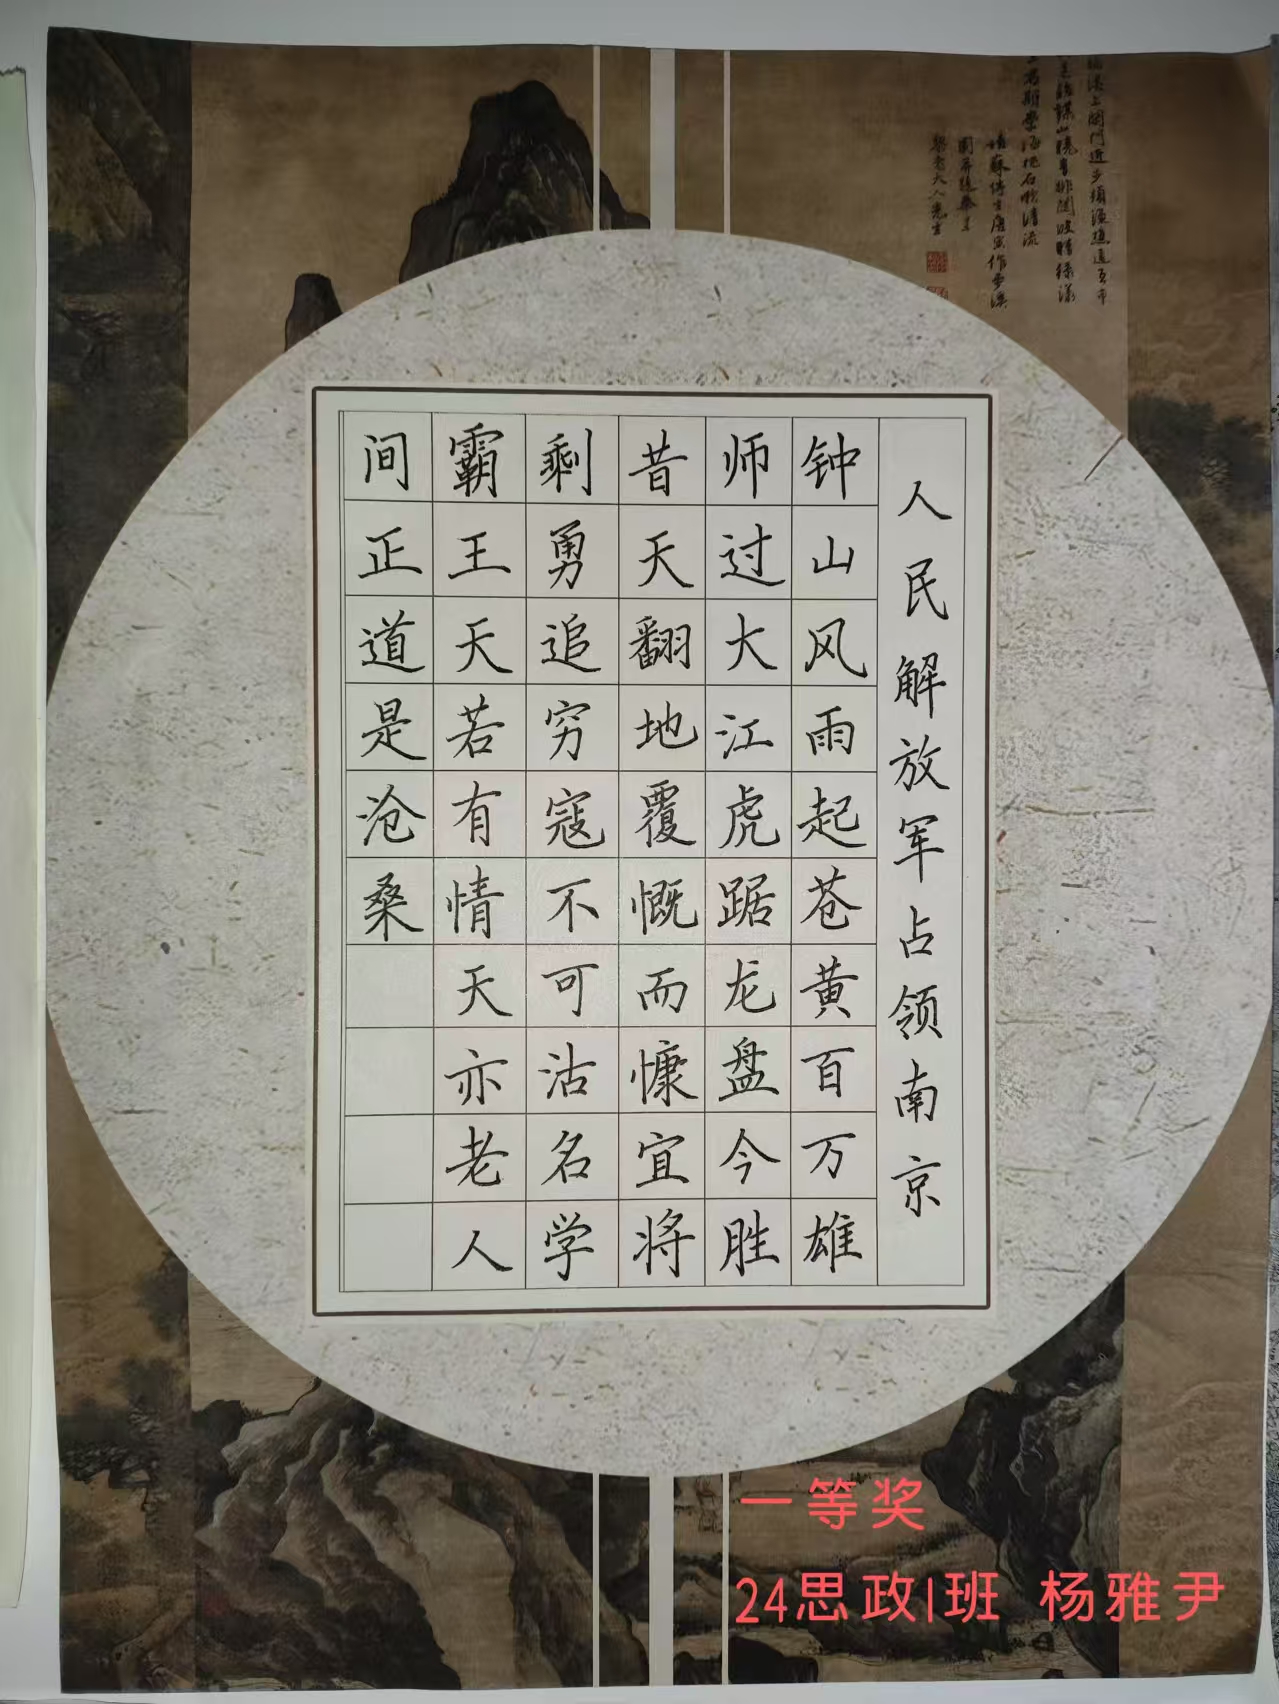 人民解放军占领南京
钟山风雨起苍黄百万雄
师过大江虎踞龙盘今胜
昔天翻地覆慨而慷宜将
剩勇追穷寇不可沽名学
霸王天若有情天亦老人
间正道是沧桑
一等奖
24思政1班 杨雅尹